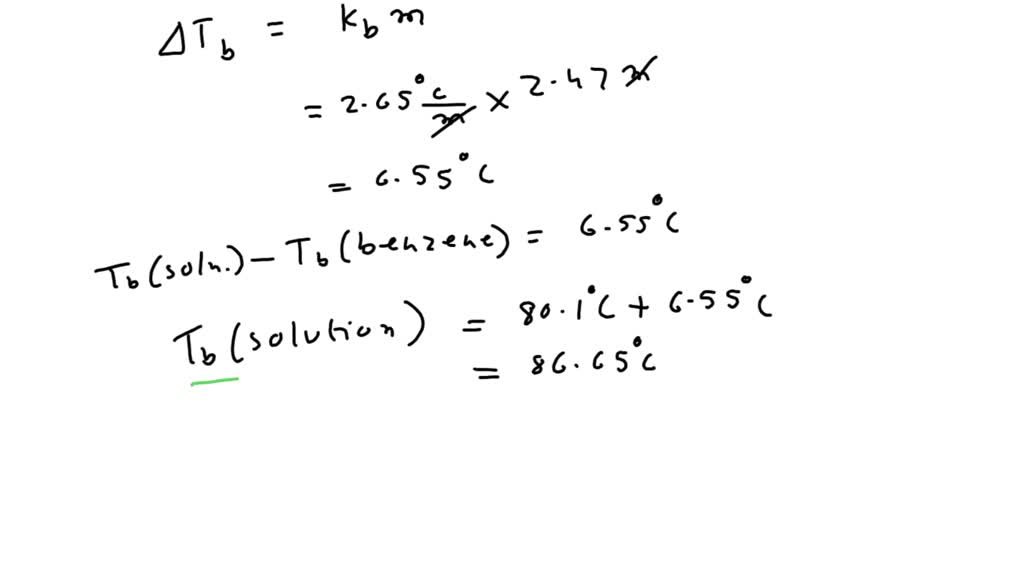 ΔT_b = K_b m
= 2.65°C/m × 2.47 m
= 6.55°C
T_b (soln.) − T_b (benzene) = 6.55°C
T_b (solution) = 80.1°C + 6.55°C
= 86.65°C